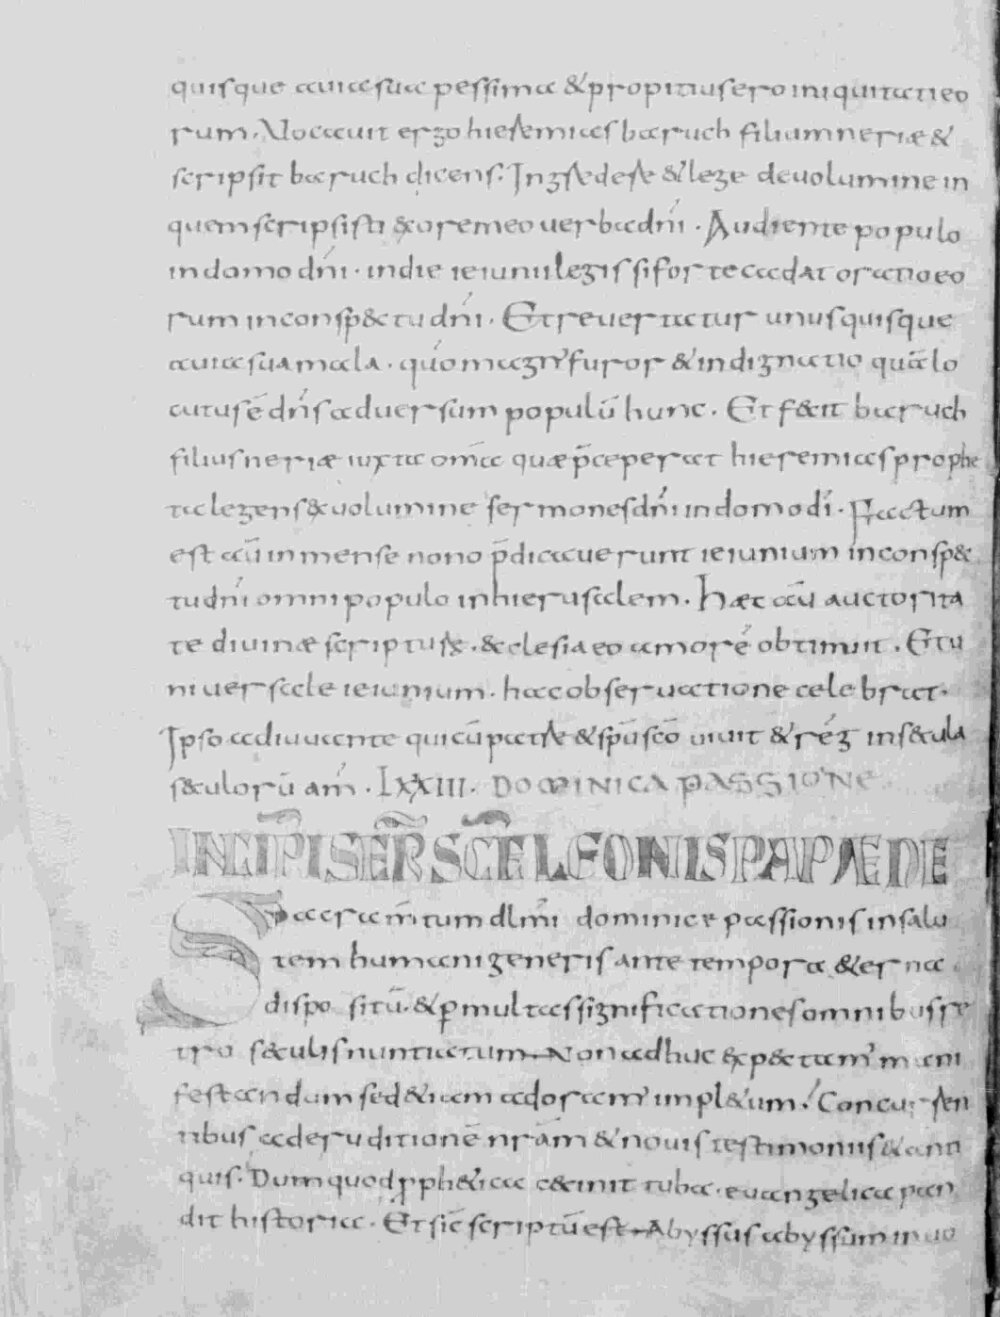 quisque a uia sua pessima & propitius ero iniquitati eo
rum. Vocauit ergo hieremias baruch filium neriæ &
scripsit baruch dicens. Ingredere & lege de uolumine in
quem scripsisti ex ore meo uerba dn̄i. Audiente populo
in domo dn̄i. in die ieiunii legis si forte cadat oratio eo
rum in consp&tu dn̄i. Et reuertatur unusquisque
a uia sua mala. qūo magn̄ furor & indignatio quā lo
cutus ē dn̄s aduersum populū hunc. Et f&it baruch
filius neriæ iuxta om̄a quæ p̄ceperat hieremias prophe
ta legens ex uolumine sermones dn̄i in domo dī. Factum
est aū in mense nono p̄dicauerunt ieiunium in consp&
tu dn̄i omni populo in hierusalem. Hæc aū auctorita
te diuinæ scripturæ. &clesia eo amore obtinuit. Et u
niuersale ieiunium. hac obseruatione celebrat.
Ipso adiuuante qui cū patre & sp̄u sc̄o uiuit & reḡ in s&ula
s&ulorū am̄. LXXIII. DOMINICA PASSIONE
INCIPI SER̄ SC̄E LEONIS PAPÆ DE
Sacram̄tum dl̄mi dominice passionis in salu
tem humani generis ante tempora &erna
dispositū. & p multas significationes omnibus re
tro s&ulis nuntiatum. Non adhuc exp&tam̄ mani
festandum sed & iam adoram̄ impl&um. Concurren
tibus ad eruditionē nr̄am & nouis testimoniis & anti
quis. Dum quod ꝓph&ica cæinit tuba. euangelica pan
dit historia. Et sic̄ scriptū est. Abyssus abyssum inuo